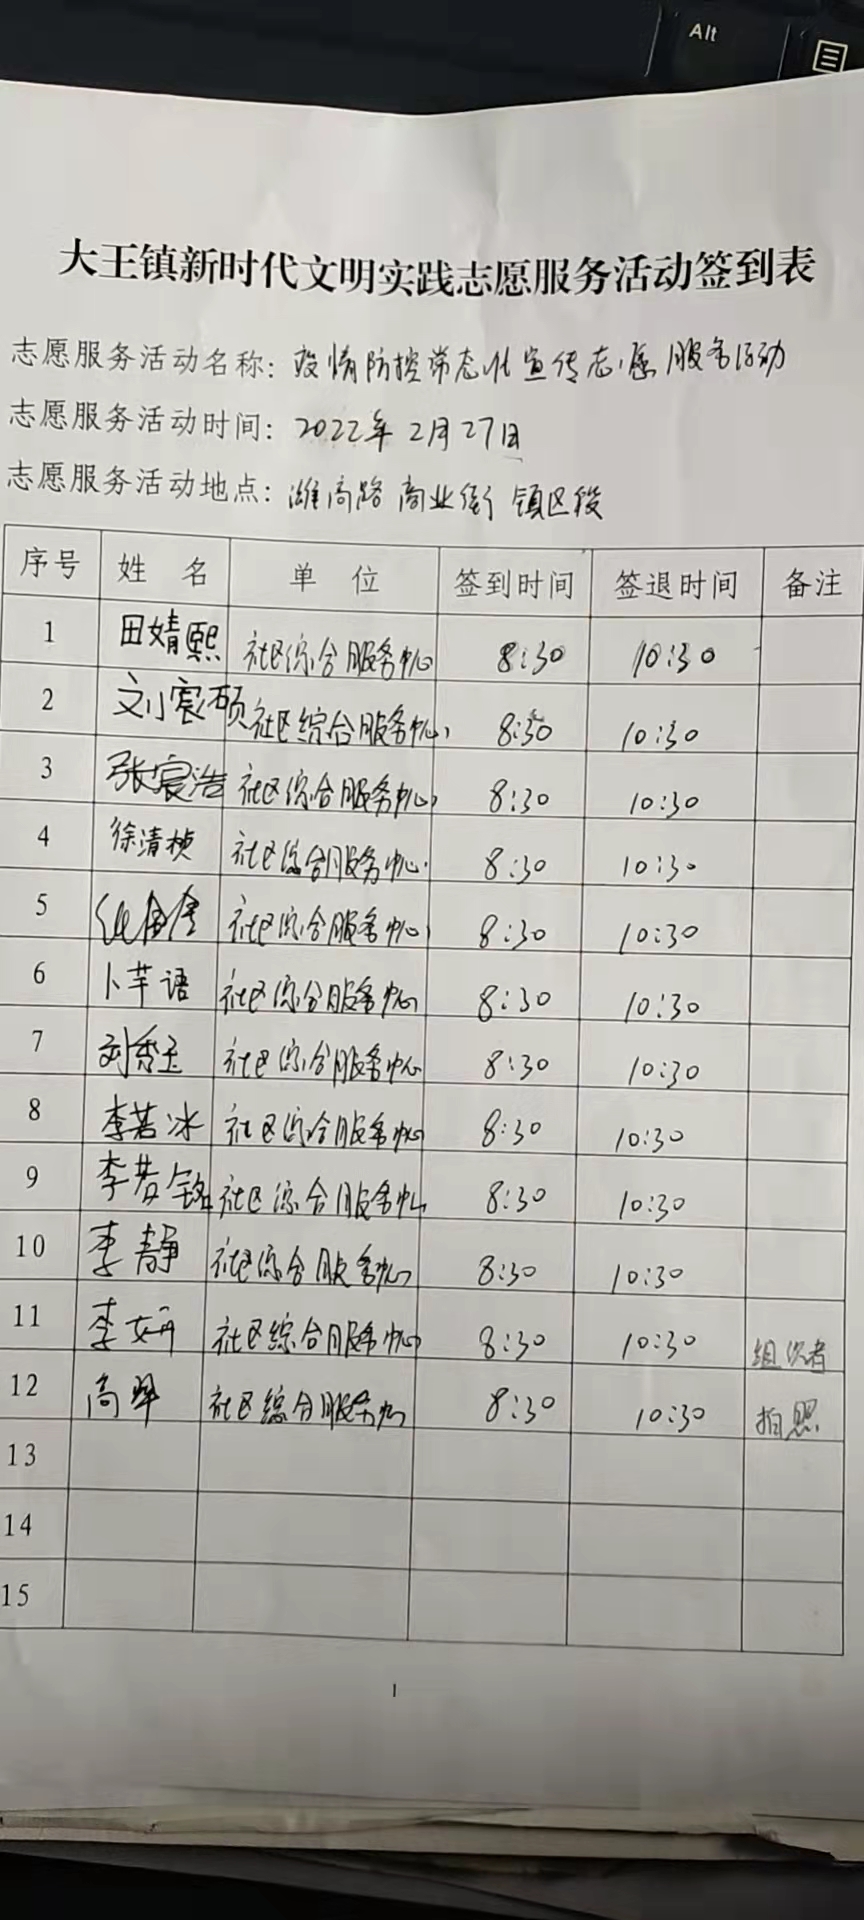 Alt
大王镇新时代文明实践志愿服务活动签到表
志愿服务活动名称：疫情防控常态化宣传志愿服务活动
志愿服务活动时间：2022年2月27日
志愿服务活动地点：潍高路 商业街 镇区段
序号 姓名 单位 签到时间 签退时间 备注
1 田婧熙 社区综合服务中心 8:30 10:30
2 刘宸硕 社区综合服务中心 8:30 10:30
3 张宸浩 社区综合服务中心 8:30 10:30
4 徐清桢 社区综合服务中心 8:30 10:30
5 社区综合服务中心 8:30 10:30
6 卜芊语 社区综合服务中心 8:30 10:30
7 刘秀玉 社区综合服务中心 8:30 10:30
8 李若冰 社区综合服务中心 8:30 10:30
9 李若铭 社区综合服务中心 8:30 10:30
10 李静 社区综合服务中心 8:30 10:30
11 李妍 社区综合服务中心 8:30 10:30 组织者
12 高 社区综合服务中心 8:30 10:30 拍照
13
14
15
1